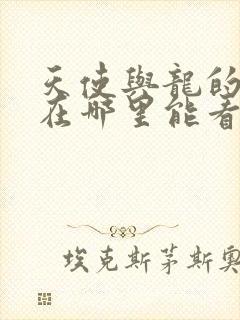 天使與龍的
在哪里能看
埃克斯茅斯奧